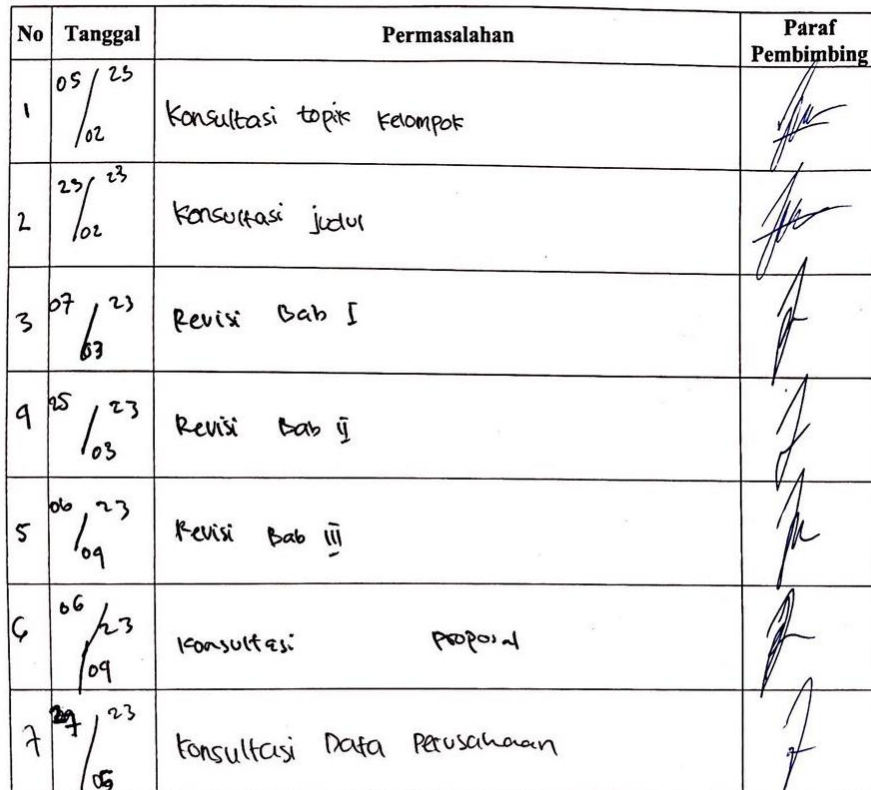 No Tanggal Permasalahan Paraf Pembimbing
1 05/02 23 Konsultasi topik kelompok
2 23/02 23 Konsultasi judul
3 07/03 23 Revisi Bab I
4 25/03 23 Revisi Bab II
5 06/04 23 Revisi Bab III
6 06/04 23 Konsultasi proposal
7 /05 23 Konsultasi Data Perusahaan